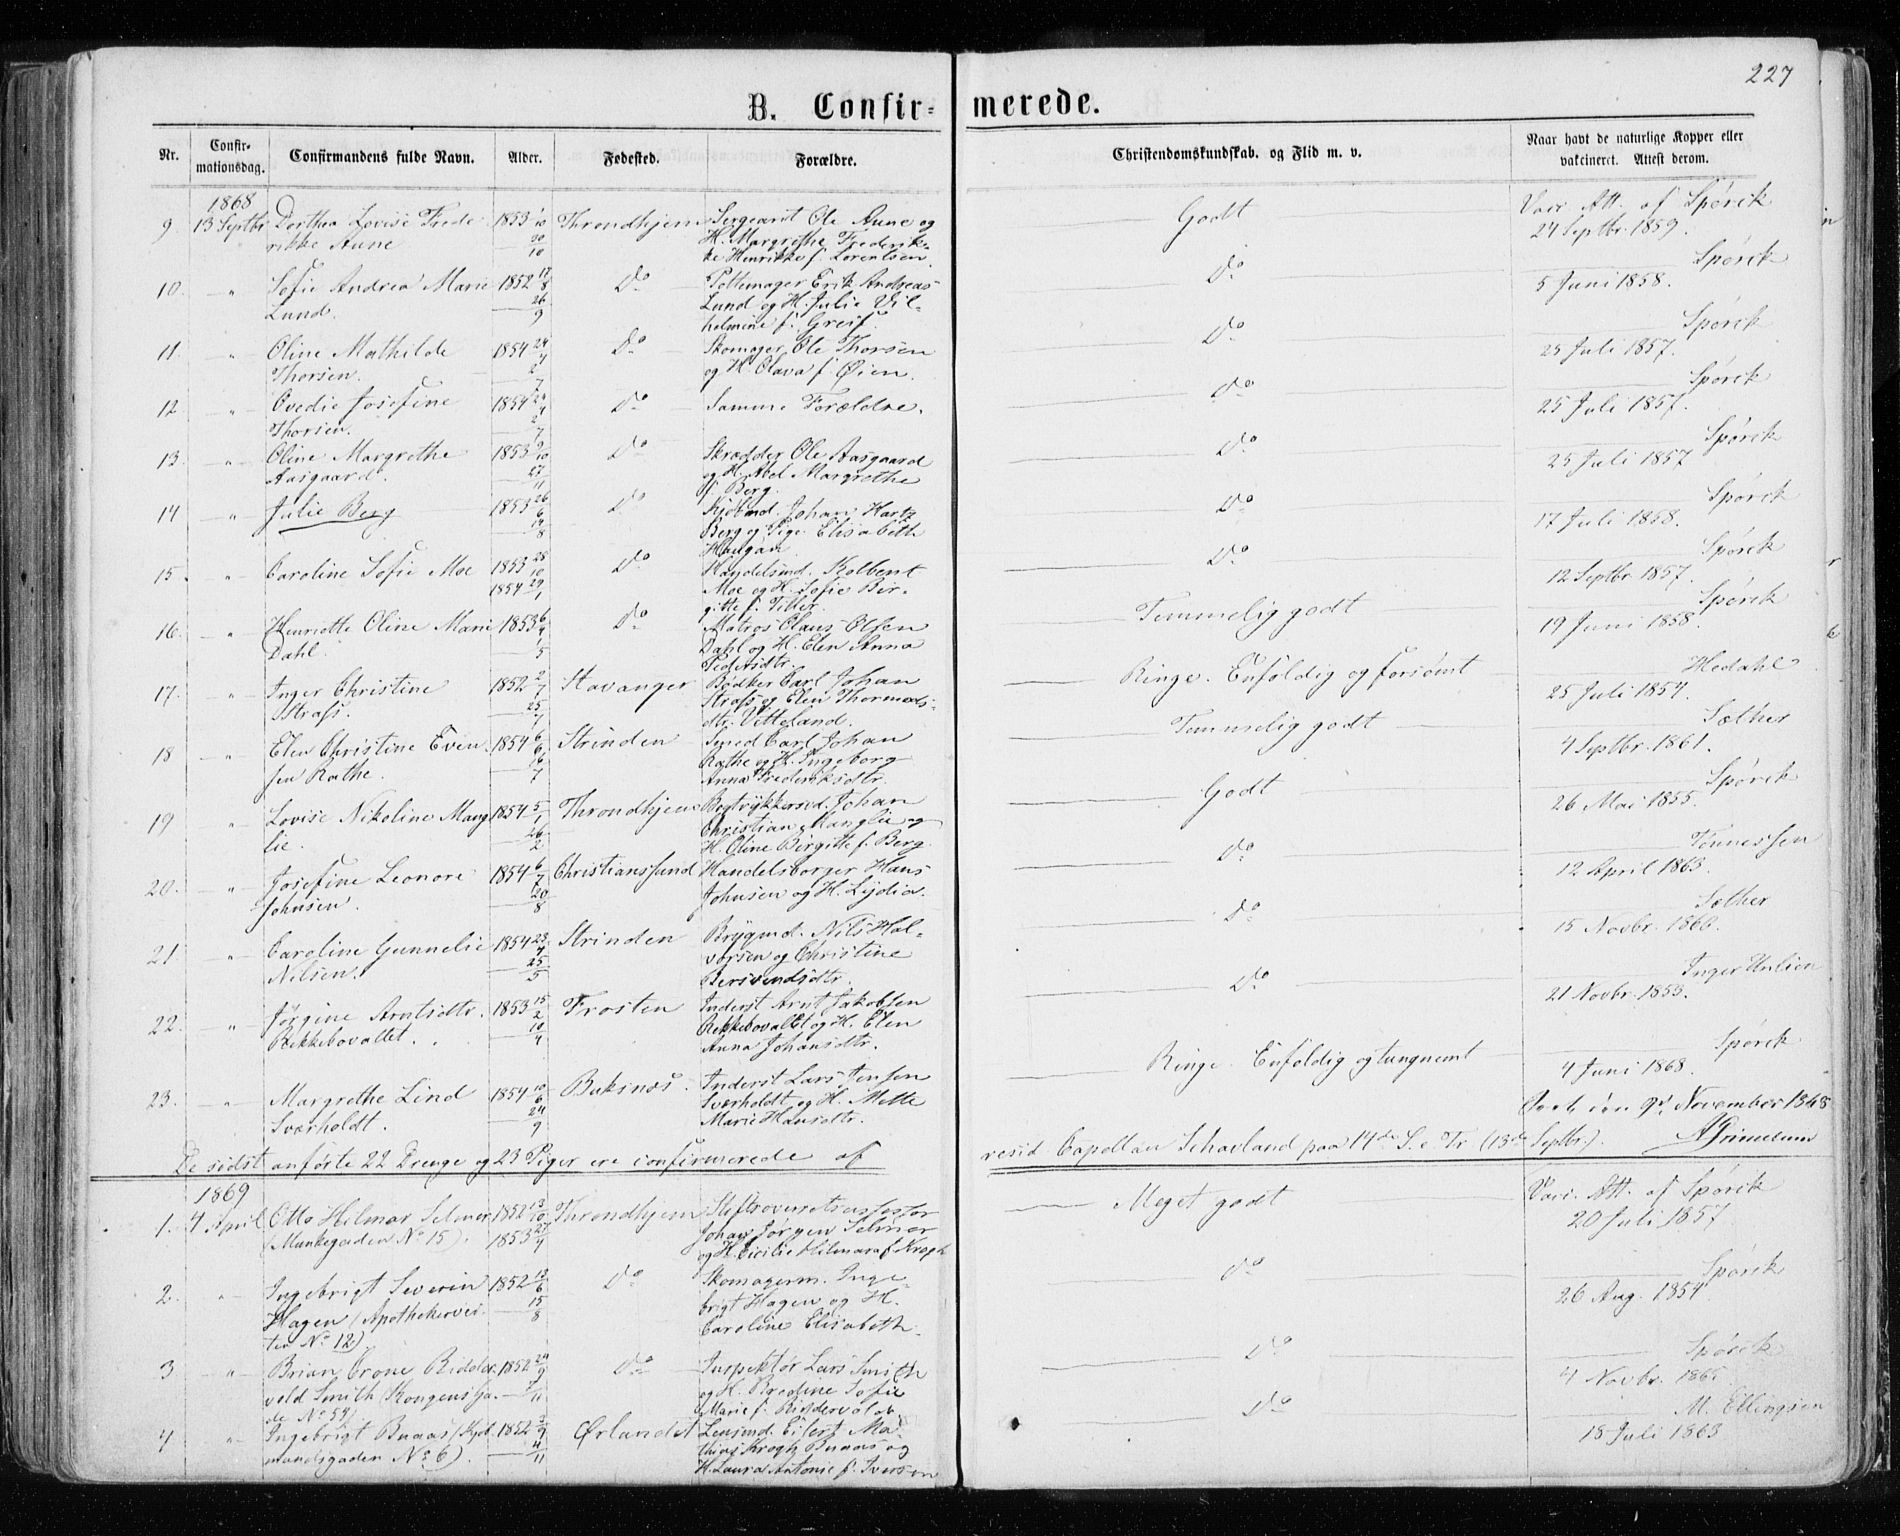 227
B. Confir- merede.
Nr. Confir-mationsdag. Confirmandens fulde Navn. Alder. Fødested. Forældre. Christendomskundskab. og Flid m. v. Naar havt de naturlige Kopper eller vakcineret. Attest derom.
1868
9. 13 Septbr Dorthea Lovise Frede 1853 Throndhjem Sergeant Ole Aune og Godt Vacc. Att. af Spørck
rikke Aune H. Margrethe Frederik- 24 Septbr. 1859.
ke Henrikke f. Lorentsen.
10. " Sofie Andrea Marie 1852 17/8 Do Pottemager Erik Andreas Do Spørck
Lund. 26/9 Lund og H. Julie Vil- 5 Juni 1858.
helmine f. Greif.
11. " Oline Mathilde 1854 24/4 Do Skomager Ole Thorsen Do Spørck
Thorsen. 2/7 og H. Olava f. Øien. 25 Juli 1857.
12 " Ovedie Josefine 1854 24/4 Do Samme Forældre. Do Spørck
Thorsen. 2/7 25 Juli 1857.
13. " Oline Margrethe 1853 9/10 Do Skrædder Ole Aasgaard Do Spørck
Aasgaard. 27/11 og H. Abel Margrethe 25 Juli 1857
f. Berg.
14 " Julie Berg 1853 26/6 Do Kjøbmd. Johan Hartz Do Spørck
14/8 Berg og Pige Elisabeth 17 Juli 1858.
Haugan.
15. " Caroline Sofie Moe 1853 28/10 Do Handelsmd. Kolbent Do Spørck
1854 29/1 Moe og H. Sofie Bir- 12 Septbr 1857.
gitte f. Tiller.
16. " Henriette Oline Marie 1853 6/4 Do Matros Olaus Olsen Temmelig godt Spørck
Dahl. 5 Dahl og H. Elen Anna 19 Juni 1858.
Pedersdtr.
17. " Inger Christine 1852 2/7 Stavanger Bødker Carl Johan Ringe. Enfoldig og forsømt Hodahl
Strass. 25/7 Strass og Elen Thormods- 25 Juli 1854.
dtr. Vitteland.
18 " Elen Christine Even 1854 6/6 Strinden Smed Carl Johan Temmelig godt Sæther
sen Rathe. 16/7 Rathe og H. Ingeborg 4 Septbr. 1861.
Anna Frederiksdtr.
19 " Lovise Nikoline Mang 1854 5/1 Throndhjem Bogtrykkersvd. Johan Godt Spørck
lie. 26/2 Christian Manglie og 26 Mai 1855.
H. Oline Birgitte f. Berg.
20. " Josefine Leonore 1854 6/7 Christianssund Handelsborger Hans Do Tønnessen
Johnsen. 20/8 Johnsen og H. Lydia. 12 April 1863.
21 " Caroline Gunnelie 1854 23/4 Strinden Brygmd. Nils Hal- Do Sæther
Nilsen. 25/5 vorsen og Christine 15 Novbr. 1860.
Bersvendsdtr.
22. " Jørgine Arntsdtr. 1853 15/2 Frosten Inderst Arnt Jakobsen Do Inger Unlien
Rekkebovallet. 10/4 Rekkebovallet og H. Elen 21 Novbr. 1853.
Anna Johansdtr.
23. " Margrethe Lind 1854 10/6 Buksnæs. Inderst Lars Jensen Ringe. Enfoldig og tungnemt Spørck
Sværholdt. 24/9 Sværholdt og H. Mette 4 Juni 1868.
Marie Hansdtr. den 9d. November 1868
De sidst anførte 22 Drenge og 23 Piger ere confirmerede af resid. Capellan Schavland paa 14de S. e Tr (13de Septbr). Grimelum
1869
1. 4 April Otto Hilmar Selmer 1852 13/10 Throndhjem Stiftsoverretsassessor Meget godt Vacc. Att. af Spørck
(Munkegaden No 15). 1853 27/4 Johan Jørgen Selmer 20 Juli 1857
og H. Cicilie Hilmara f. Krogh
2. " Ingebrigt Severin 1852 13/6 Do Skomagerm. Inge- Do Spørck
Hagen (Apothekervei- 15/8 brigt Hagen og H. 26 Aug. 1854
ten No 12) Caroline Elisabeth.
3 " Brian Crone Ridder 1852 29/9 Do Inspektør Lars Smith Do Spørck
vold Smith (Kongensga- og H. Bredine Sofie 4 Novbr. 1865
de No 54) Marie f. Riddervold.
4 " Ingebrigt Buaas (Kjøb 1852 3/9 Ørlandet Lensmd. Eilert Ma- Do M. Ellingsen
mandsgaden No 6). 4/11 thias Krogh Buaas og 18 Juli 1863
H. Laura Antonie f. Iversen